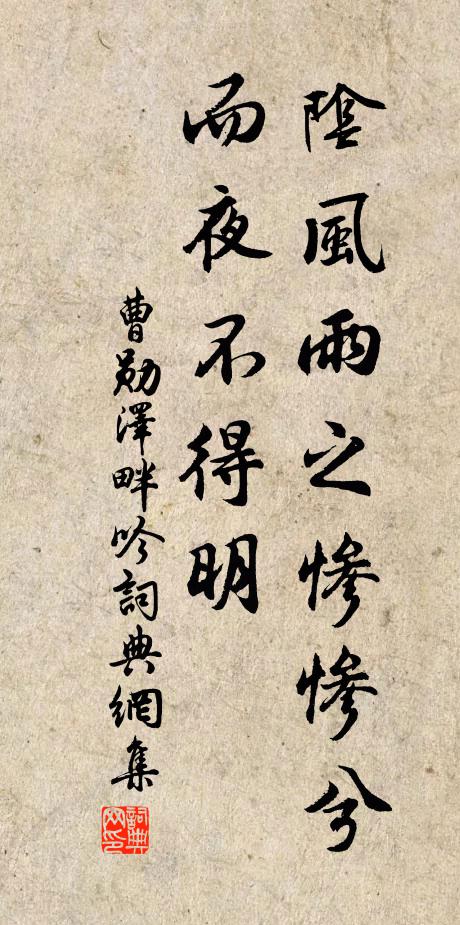 陰風雨之慘慘兮
而夜不得明
曹勛澤畔吟詞典網集
詞典网印